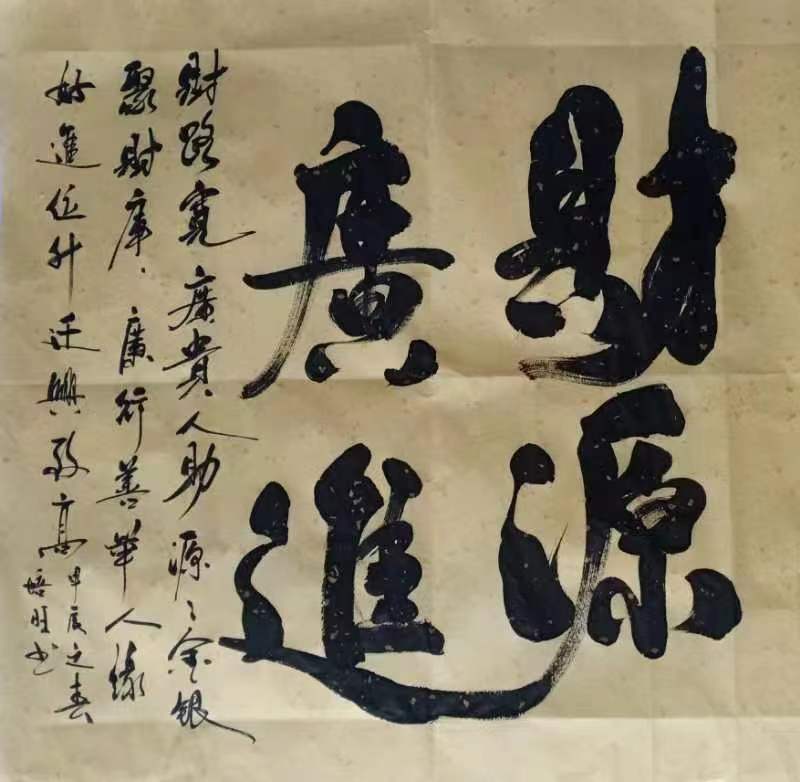 財源
廣進
財路寬廣貴人助源〻金銀
聚財庫、廣行善舉人緣
好進位升迁興致高甲辰之春
培旺书